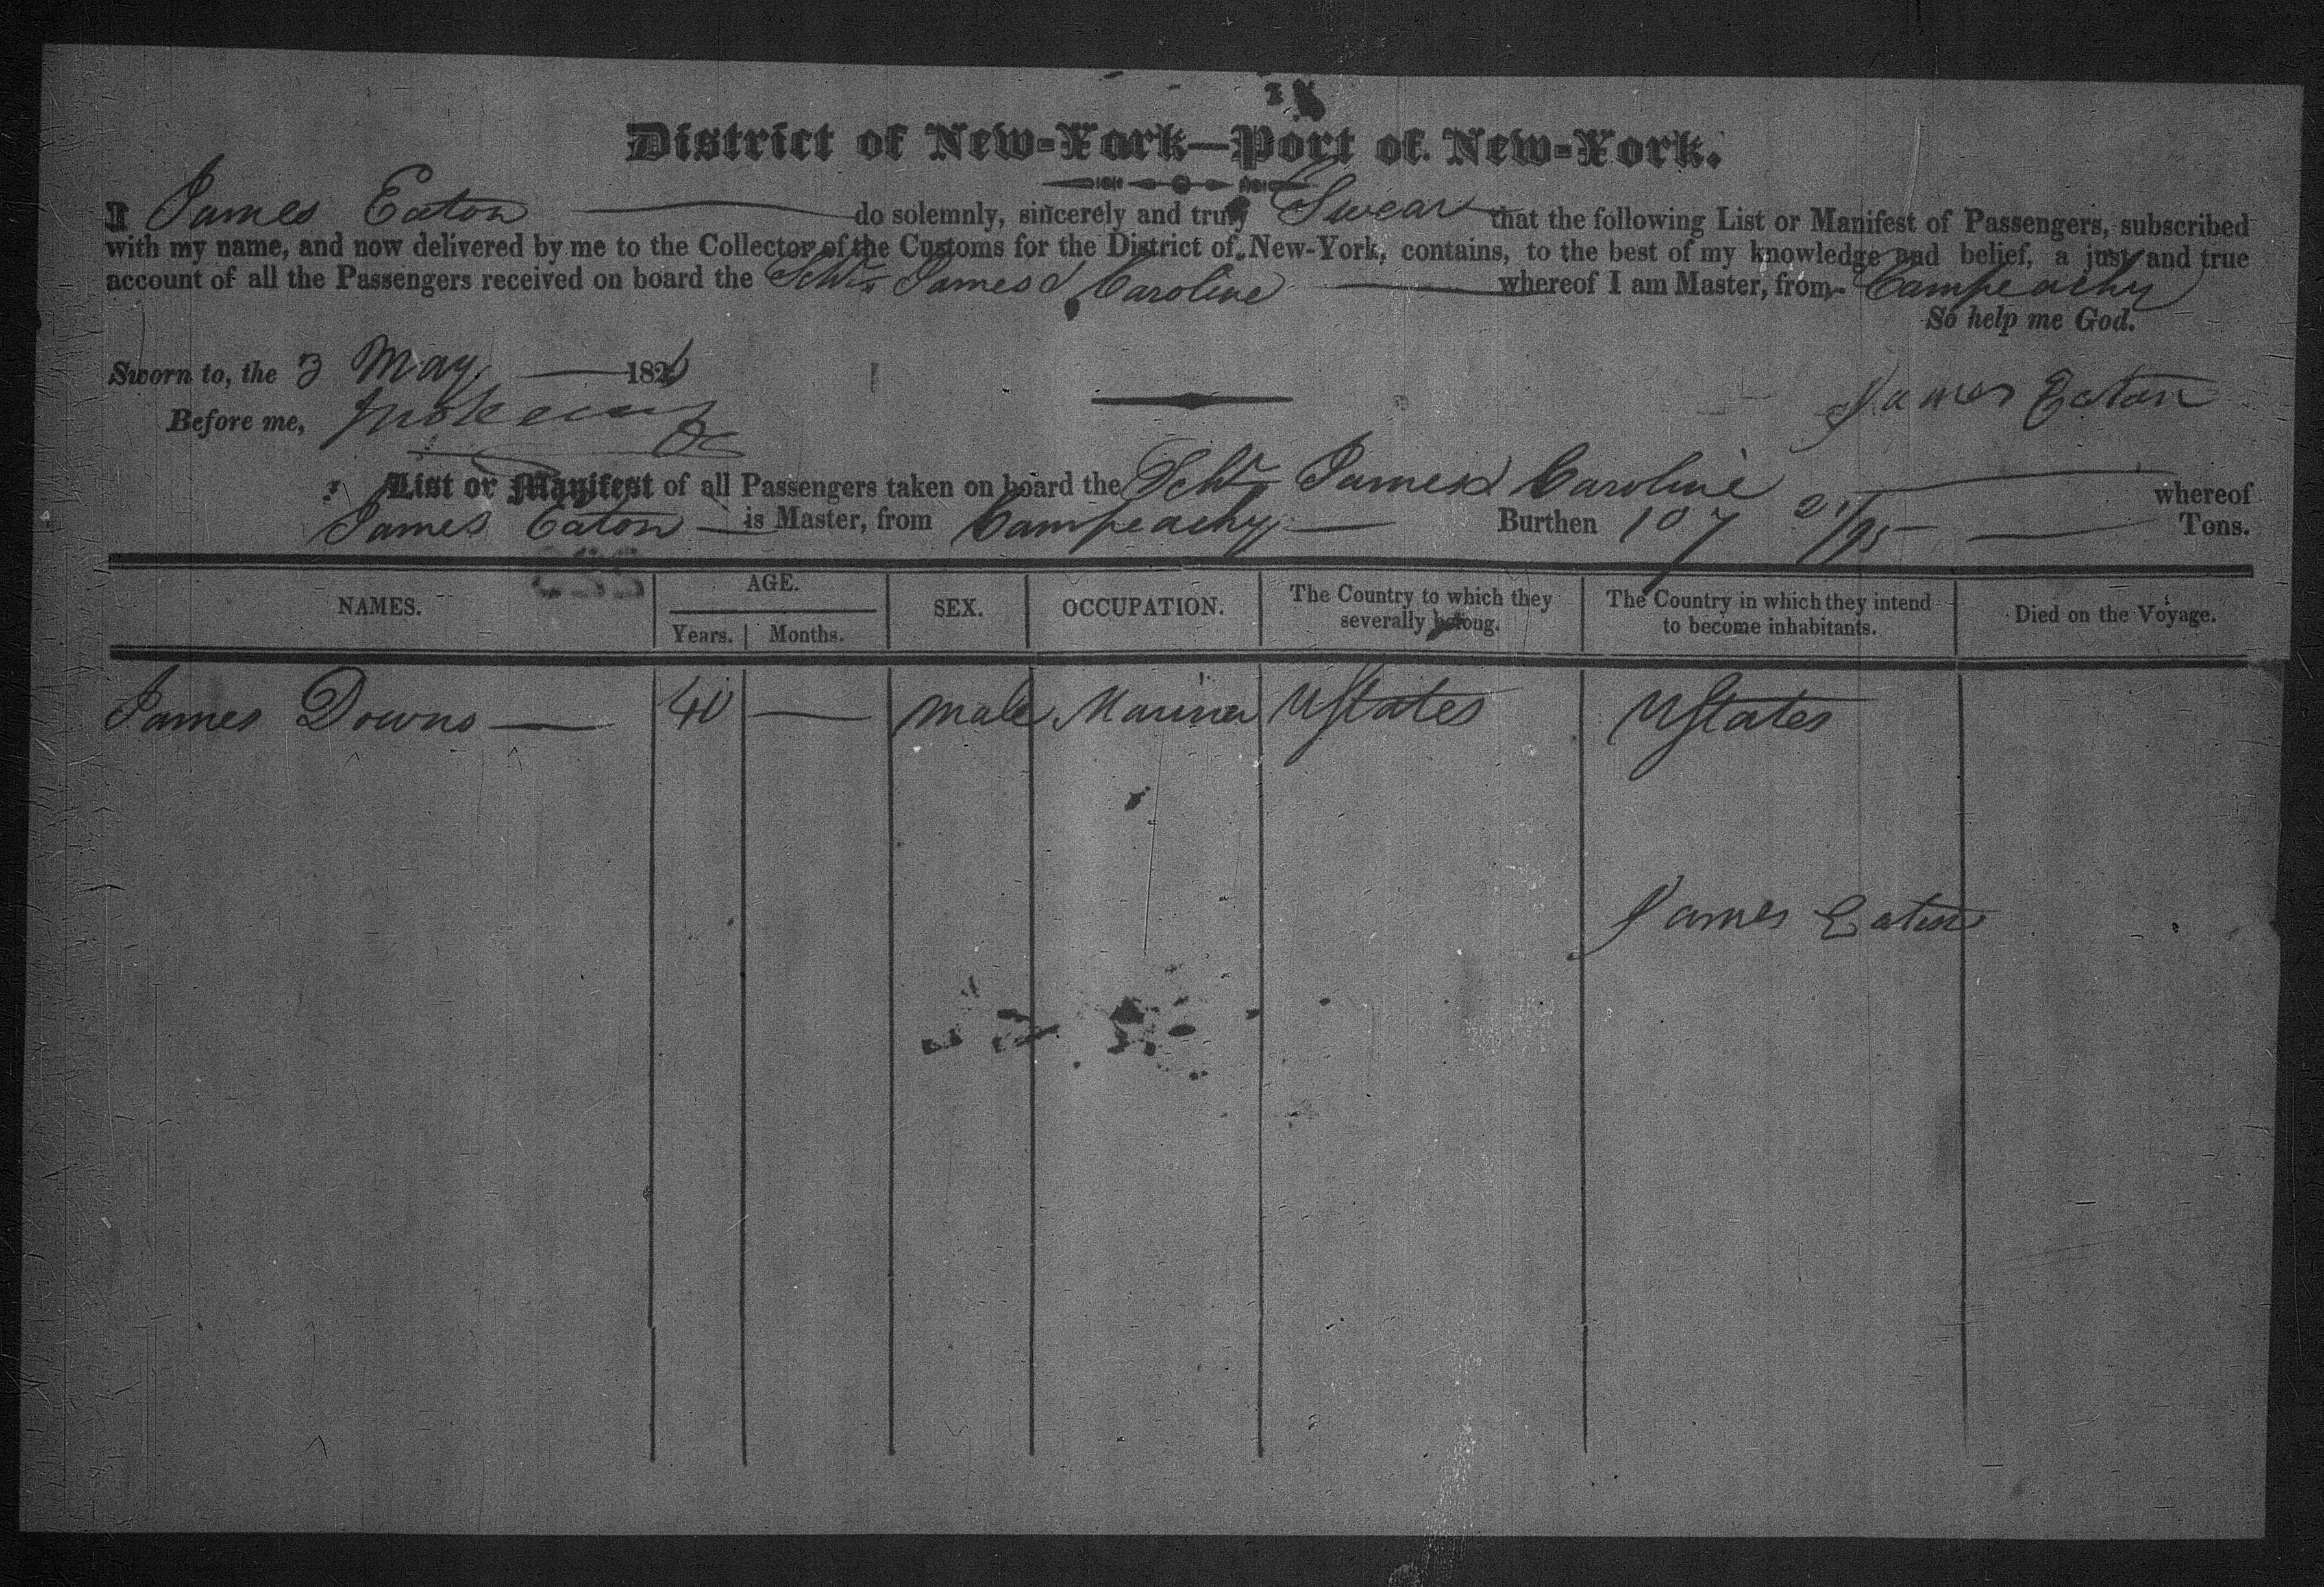 District of New-York—Port of New-York.
I James Eaton do solemnly, sincerely and truly Swear that the following List or Manifest of Passengers, subscribed
with my name, and now delivered by me to the Collector of the Customs for the District of New-York, contains, to the best of my knowledge and belief, a just and true
account of all the Passengers received on board the Schr James & Caroline whereof I am Master, from Campeachy
So help me God.
Sworn to, the 3 May 1826
James Eaton
Before me,
List or Manifest of all Passengers taken on board the Schr James & Caroline whereof
James Eaton is Master, from Campeachy Burthen 107 21/95 Tons.
NAMES. AGE. Years. Months. SEX. OCCUPATION. The Country to which they severally belong. The Country in which they intend to become inhabitants. Died on the Voyage.
James Downs — 40 — male Mariner UStates UStates
James Eaton